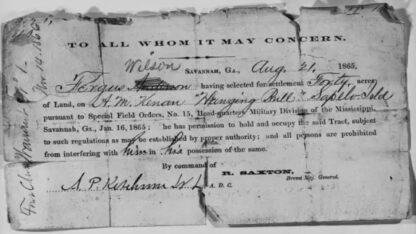 TO ALL WHOM IT MAY CONCERN.
Wilson
SAVANNAH, GA., Aug. 21, 1865.
Fergus having selected for settlement Forty acres
of Land, on A. M. Kenan "Hanging Bull" Sapelo Isld
pursuant to Special Field Orders, No. 15, Head-quarters Military Division of the Mississippi,
Savannah, Ga., Jan. 16, 1865; he has permission to hold and occupy the said Tract, subject
to such regulations as may be established by proper authority; and all persons are prohibited
from interfering with him in his possession of the same.
By command of
R. SAXTON,
Brevet Maj. General.
A. P. Ketchum
A. D. C.